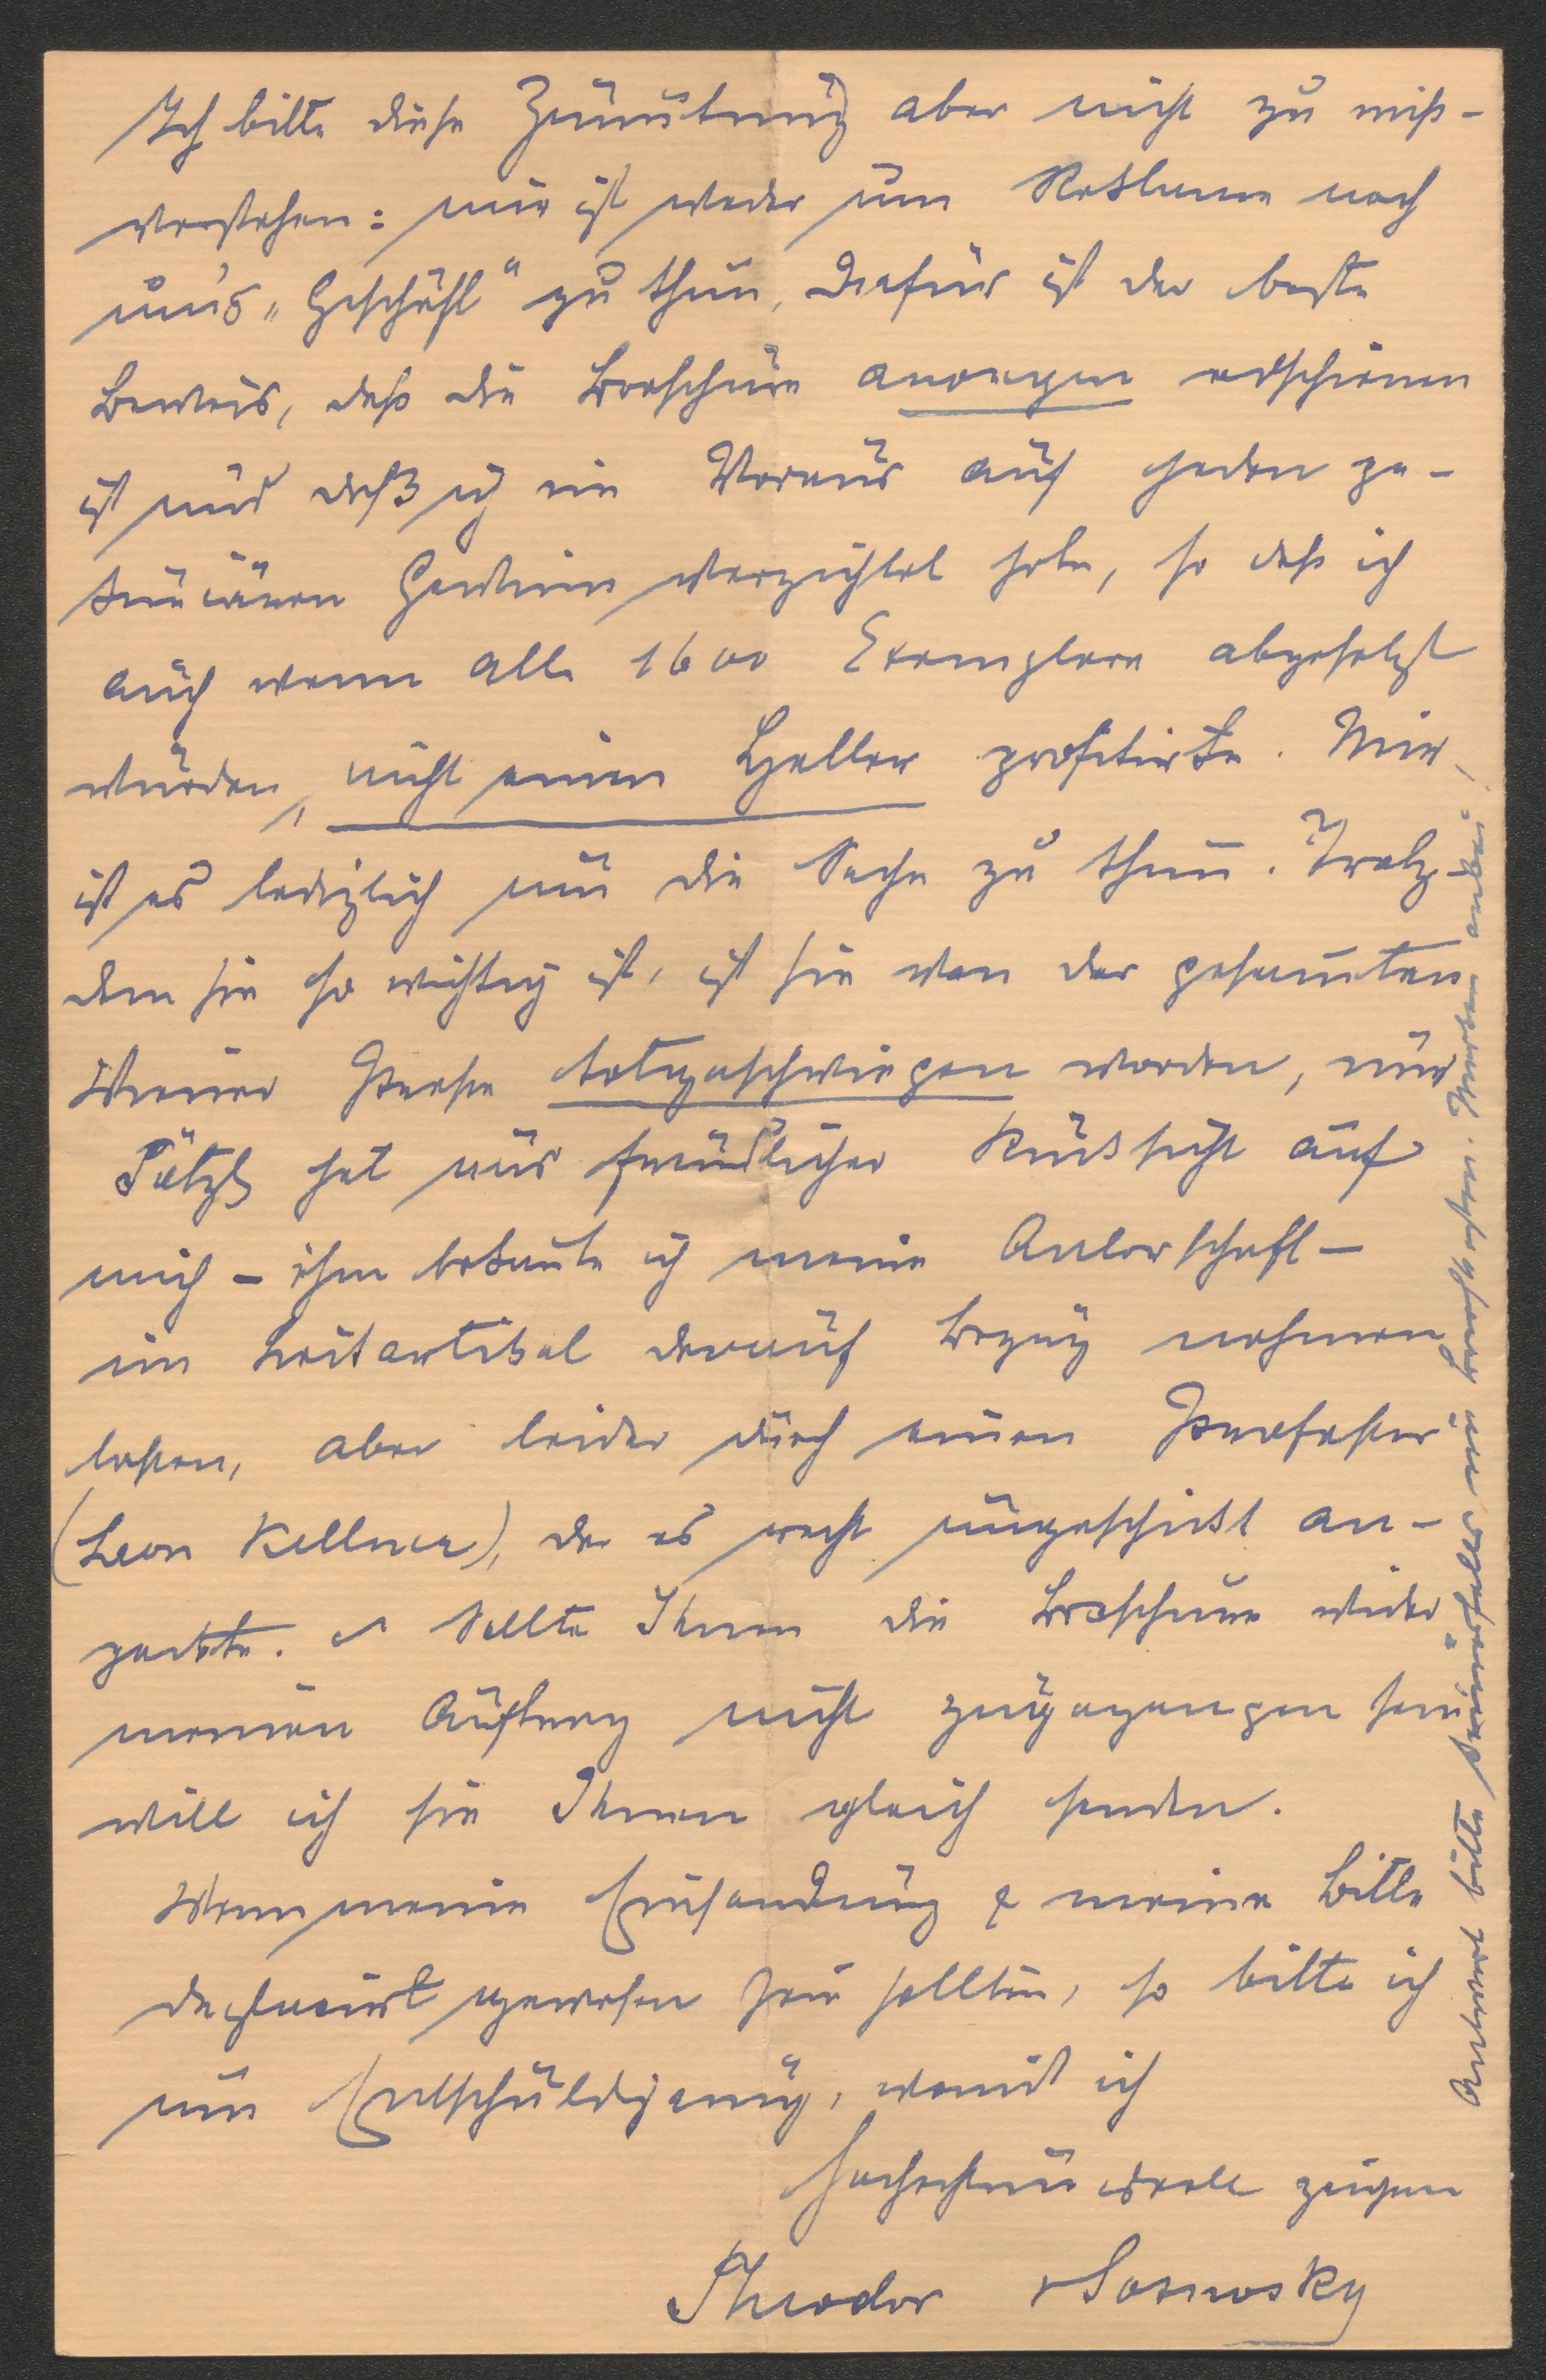 Ich bitte diese Zumutung aber nicht zu miß-
verstehen: mir ist weder um Reklame noch
um's „Geschäft“ zu thun, dafür ist der beste
Beweis, daß die Broschüre anonym erschienen
ist und daß ich im Voraus auf jeden pe-
kuniären Gewinn verzichtet habe, so daß ich
auch wenn alle 1600 Exemplare abgesetzt
würden, nicht einen Heller profitirte. Mir
ist es lediglich um die Sache zu thun. Trotz-
dem sie so wichtig ist, ist sie von der gesamten
Wiener Presse totgeschwiegen worden, nur
Pötzl hat aus freundlicher Rücksicht auf
mich – ihm bekannte ich meine Autorschaft –
im Leitartikel darauf Bezug nehmen
lassen, aber leider durch einen Professor
(Leon Kellner), der es recht ungeschickt an-
packte. Sollte Ihnen die Broschüre wider
meinen Auftrag nicht zugegangen sein
will ich sie Ihnen gleich senden.
Wenn meine Einsendung & meine Bitte
deplacirt gewesen sein sollten, so bitte ich
um Entschuldigung, womit ich
hochachtungsvoll zeichne
Theodor v Sosnosky